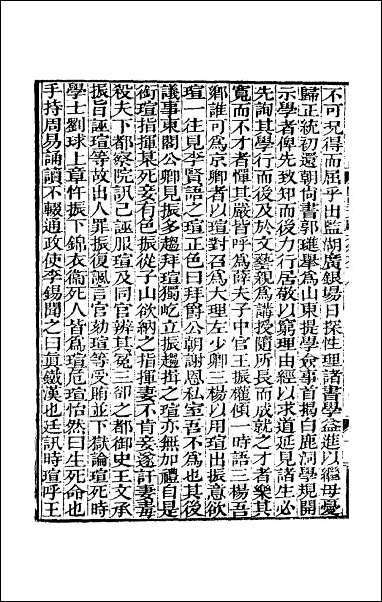 不可況得而屈乎出監湖廣銀場日探性理諸書學益進以繼母憂
歸正統初還朝尚書郭璡舉為山東提學僉事首揭白鹿洞學規開
示學者俾先致知而後力行居敬以窮理由經以求道延見諸生必
先詢其學行而後及於文藝親為講授隨所長而成就之才者樂其
寬而不才者憚其嚴皆呼為薛夫子中官王振權傾一時語三楊吾
鄉誰可為京卿者以瑄對召為大理左少卿三楊以用瑄出振意欲
瑄一往見李賢語之瑄正色曰拜爵公朝謝恩私室吾不為也其後
議事東閣公卿見振多趨拜瑄獨屹立振趨揖之瑄亦無加禮自是
銜瑄指揮某死妾有色振從子山欲納之指揮妻不肯妾遂訐妻毒
殺夫下都察院訊己誣服瑄及同官辨其冤三卻之都御史王文承
振旨誣瑄等故出人罪振復諷言官劾瑄等受賄並下獄論瑄死時
學士劉球上章忤振下錦衣衞死人皆為瑄危瑄怡然曰生死命也
手持周易誦讀不輟通政使李錫聞之曰真鐵漢也廷訊時瑄呼王